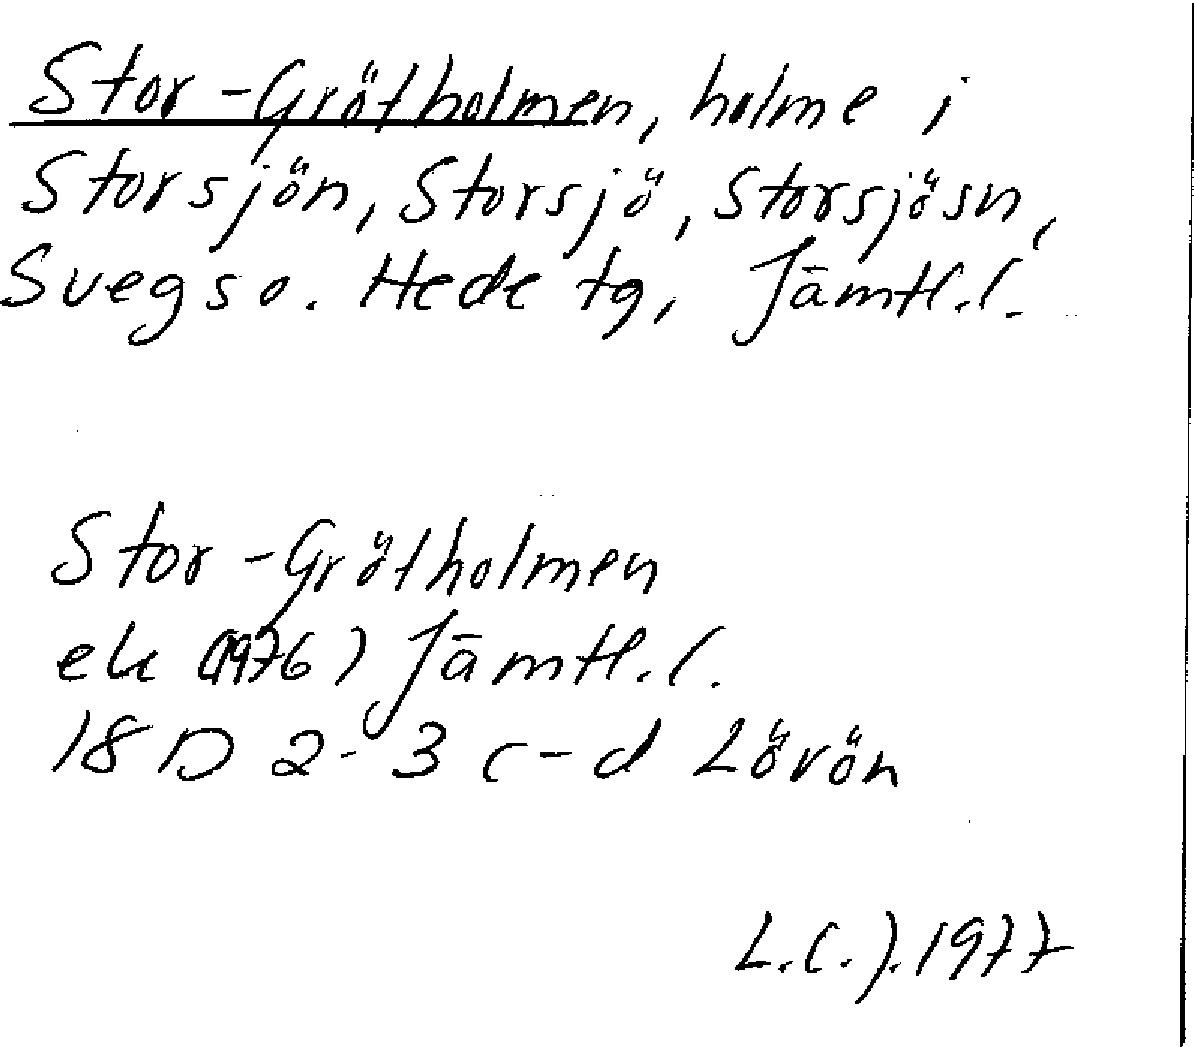 Stor-Grötholmen, holme i
Storsjön, Storsjö, Storsjösn,
Svegs o. Hede tg, Jämtl.l.
Stor-Grötholmen
ek (1976) Jämtl.l.
18 D 2-3 c-d Lövön
L.C.J. 1977